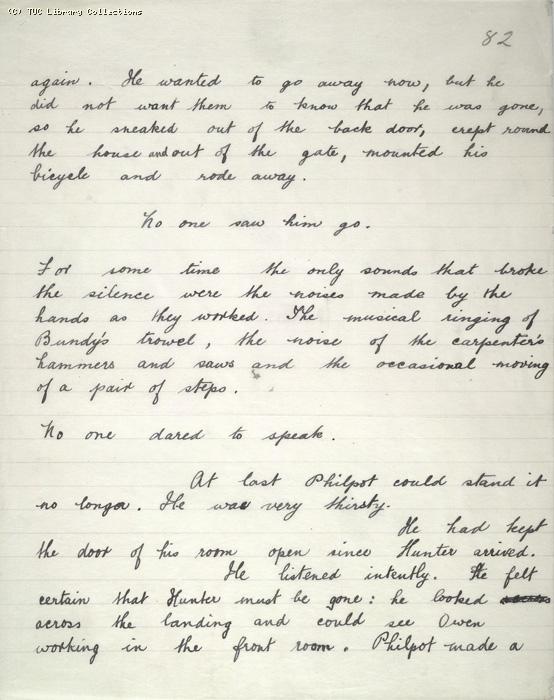 (C) TUC Library Collections
82
again. He wanted to go away now, but he
did not want them to know that he was gone,
so he sneaked out of the back door, crept round
the house and out of the gate, mounted his
bicycle and rode away.
No one saw him go.
For some time the only sounds that broke
the silence were the noises made by the
hands as they worked. The musical ringing of
Bundy's trowel, the noise of the carpenter's
hammers and saws and the occasional moving
of a pair of steps.
No one dared to speak.
At last Philpot could stand it
no longer. He was very thirsty.
He had kept
the door of his room open since Hunter arrived.
He listened intently. He felt
certain that Hunter must be gone: he looked
across the landing and could see Owen
working in the front room. Philpot made a